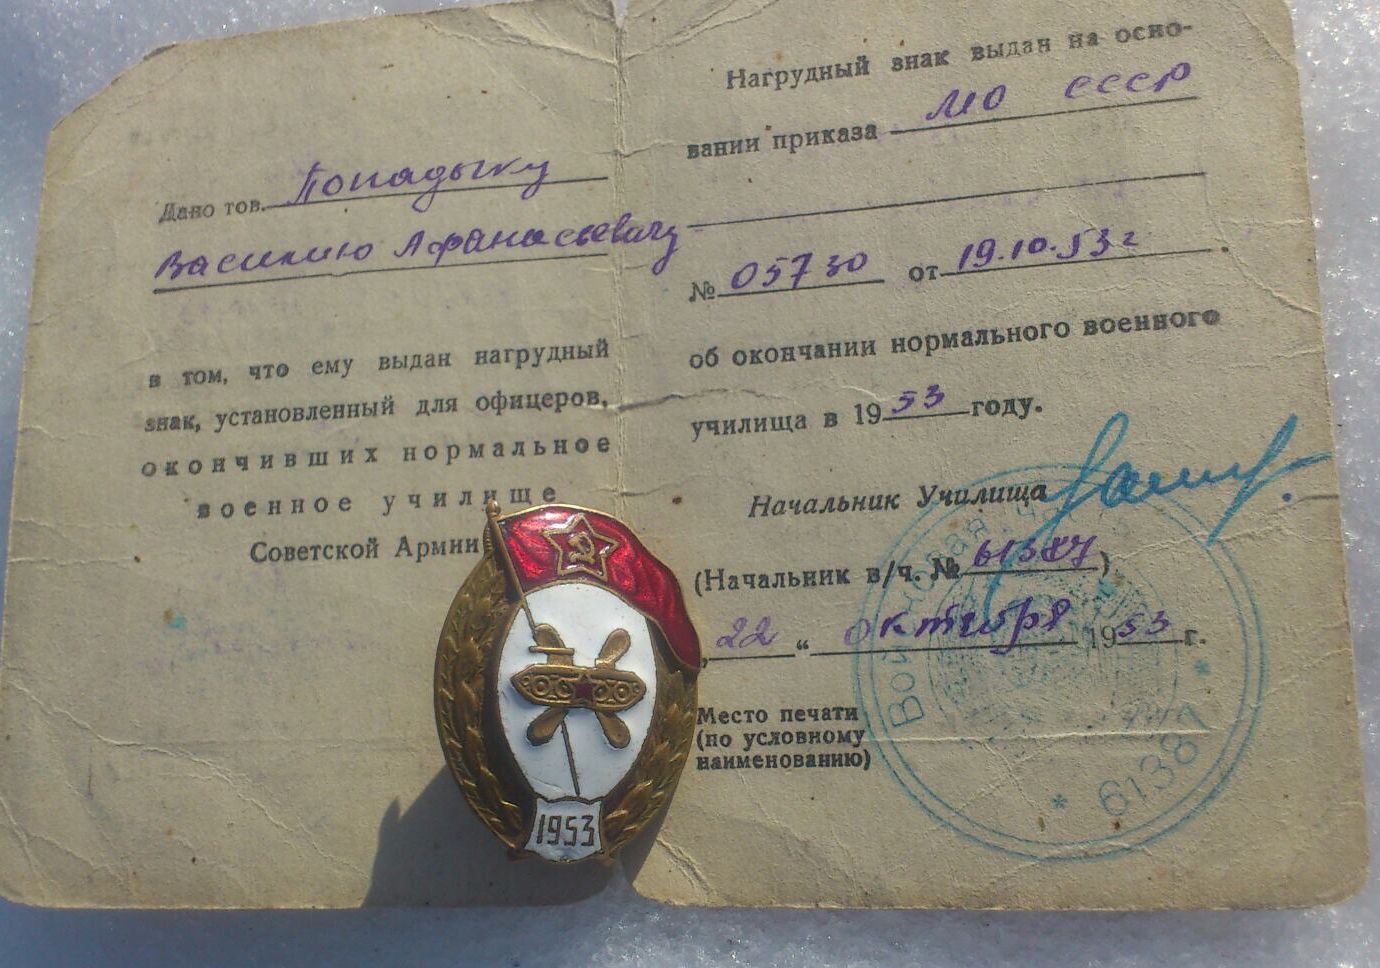 Дано тов. Попадыку
Василию Афанасьевичу
в том, что ему выдан нагрудный
знак, установленный для офицеров,
окончивших нормальное
военное училище
Советской Армии
1953
Нагрудный знак выдан на осно-
вании приказа МО СССР
№ 05730 от 19.10.53г.
об окончании нормального военного
училища в 1953 году.
Начальник Училища
(Начальник в/ч. № 61387)
„22“ октября 1953 г.
Место печати
(по условному
наименованию)
Войсковая
* 61387 *